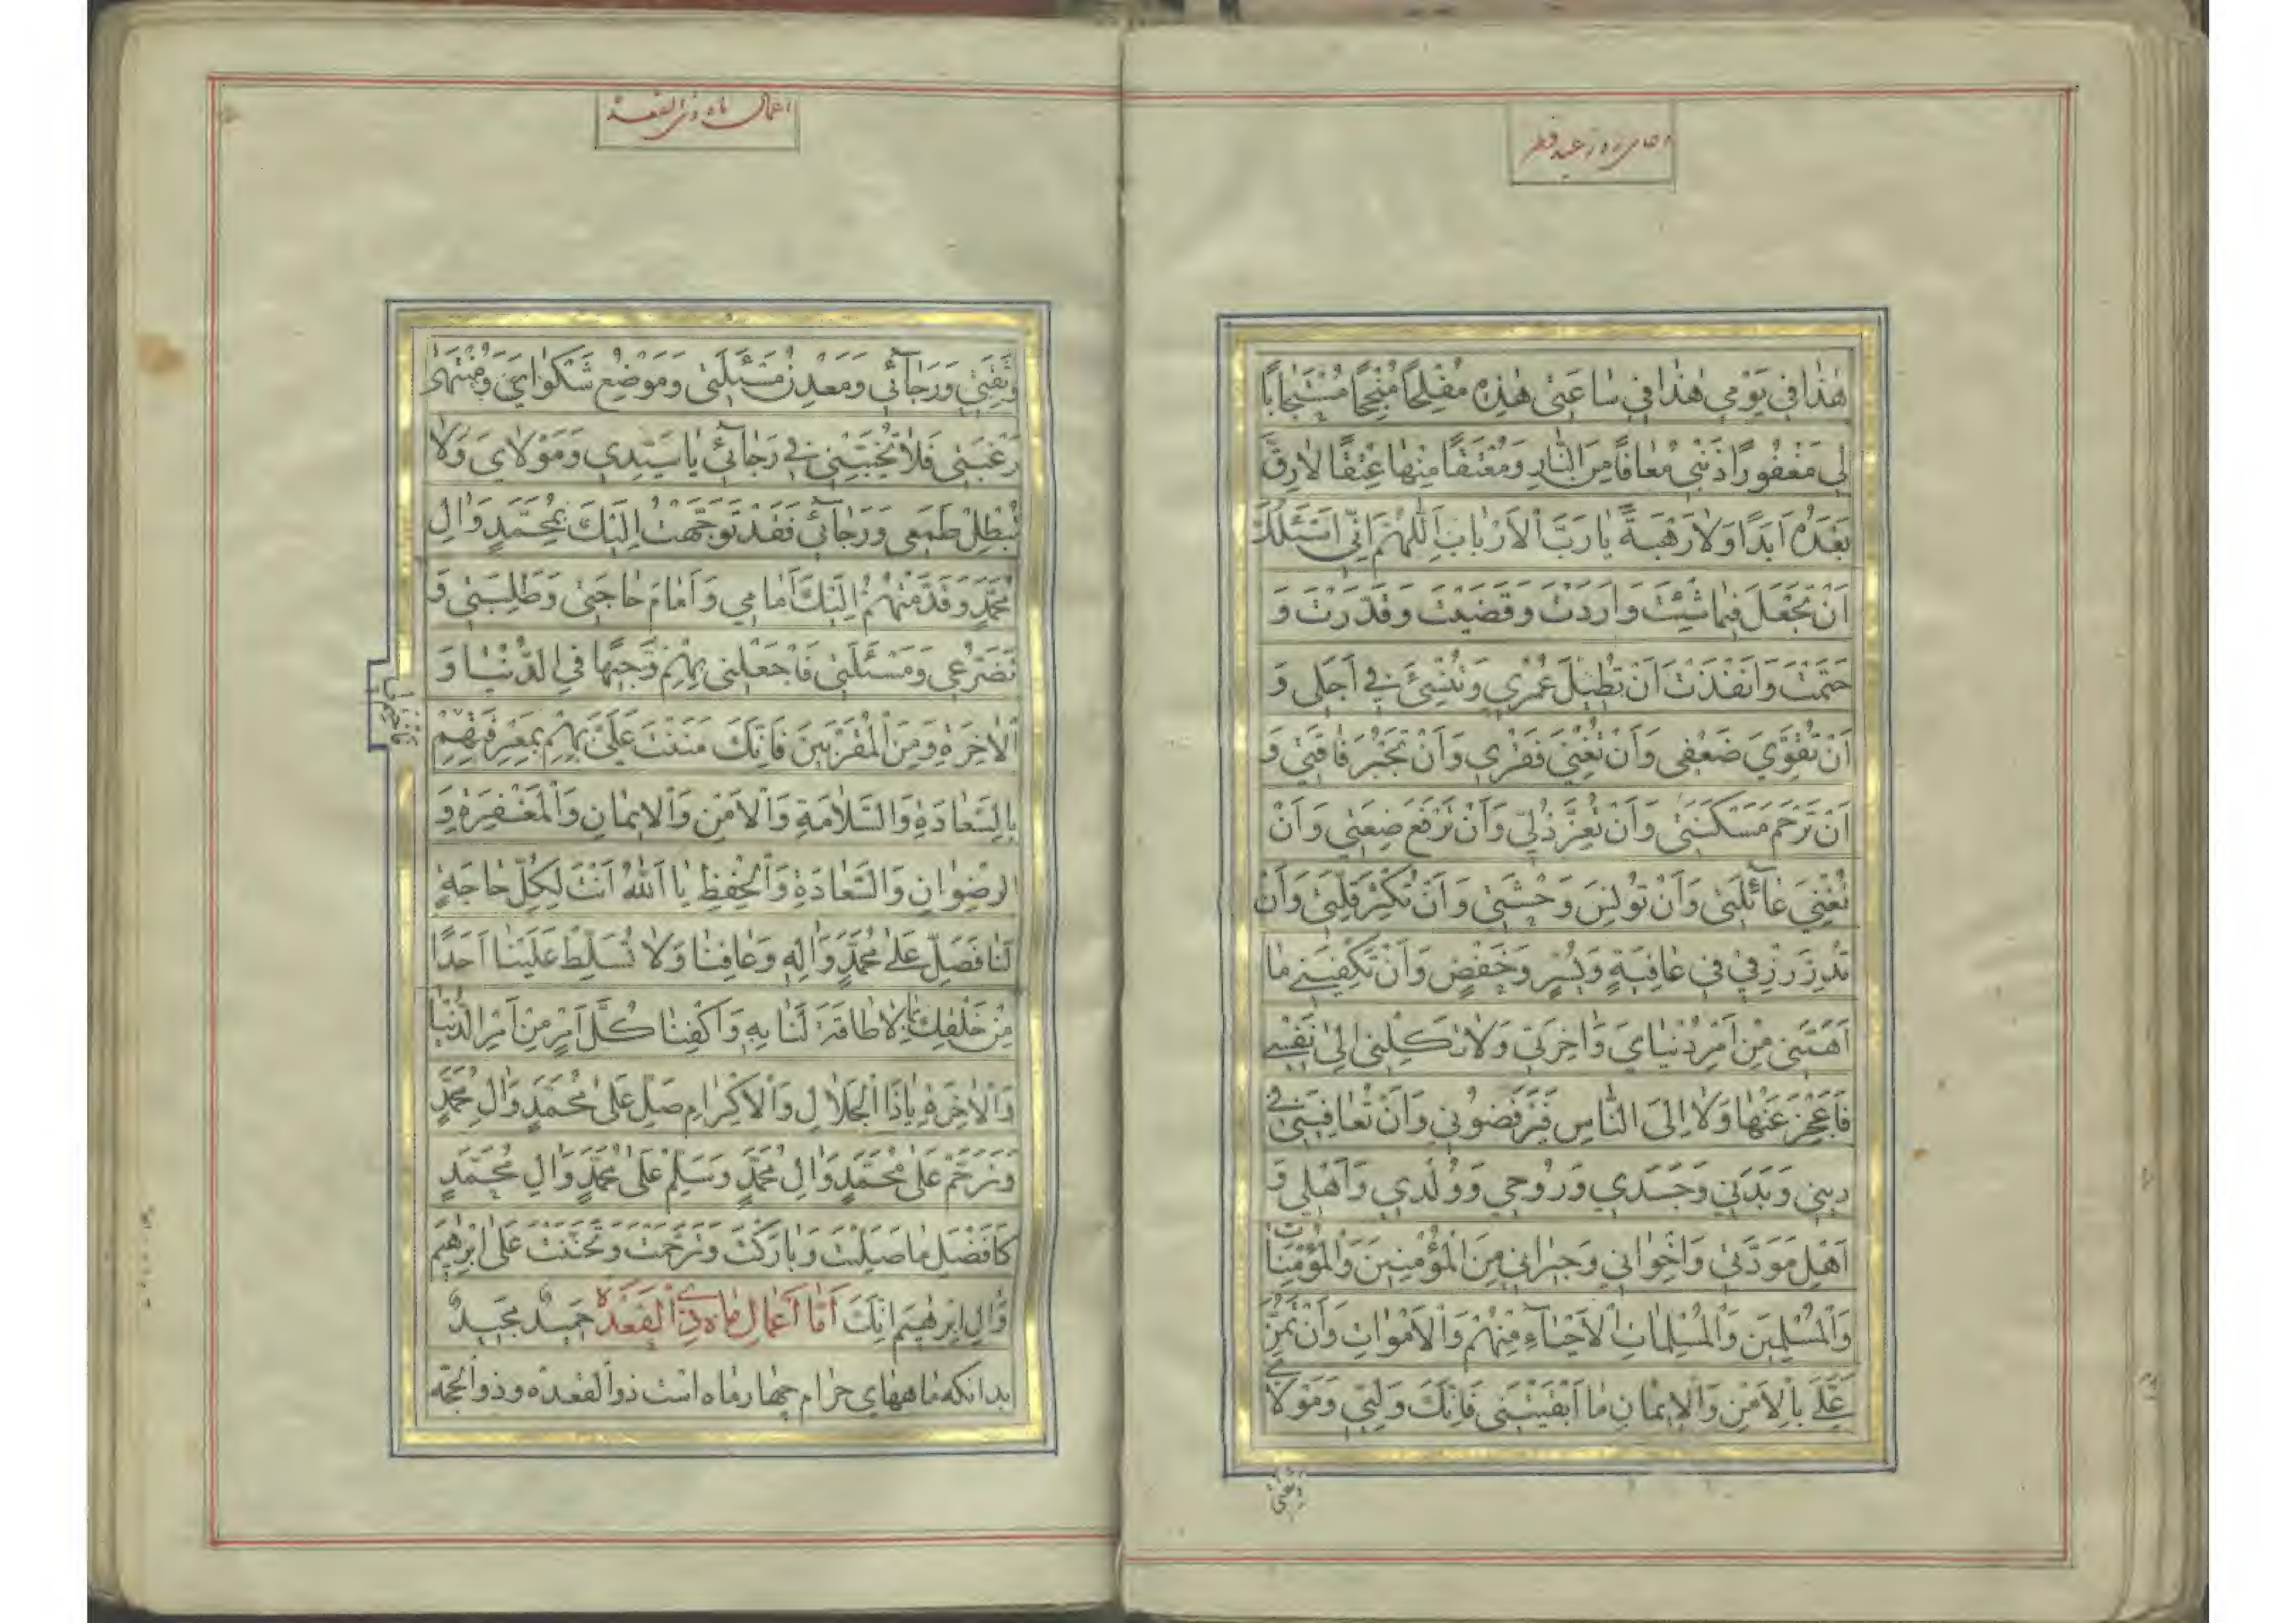 دعای روز عید فطر
هٰذا في يَوْمي هٰذا في ساعَتي هٰذِهِ مُفْلِحًا مُنْجِحًا مُسْتَجابًا
لي مَغْفُورًا ذَنْبي مُعافًا مِنَ النّارِ وَمُعْتَقًا مِنْها عِتْقًا لارِقَّ
بَعْدَهُ اَبَدًا وَلارَهْبَةً يا رَبَّ الْاَرْبابِ اَللّٰهُمَّ اِنّي اَسْئَلُكَ
اَنْ تَجْعَلَ فيما شِئْتَ وَاَرَدْتَ وَقَضَيْتَ وَقَدَّرْتَ وَ
حَتَمْتَ وَاَنْفَذْتَ اَنْ تُطيلَ عُمْري وَتُنْسِئَ في اَجَلي وَ
اَنْ تُقَوِّيَ ضَعْفي وَاَنْ تُغْنِيَ فَقْري وَاَنْ تَجْبُرَ فاقَتي وَ
اَنْ تَرْحَمَ مَسْكَنَتي وَاَنْ تُعِزَّ ذُلّي وَاَنْ تَرْفَعَ ضِعَتي وَاَنْ
تُغْنِيَ عائِلَتي وَاَنْ تُونِسَ وَحْشَتي وَاَنْ تُكْثِرَ قِلَّتي وَاَنْ
تُدِرَّ رِزْقي في عافِيَةٍ وَيُسْرٍ وَخَفْضٍ وَاَنْ تَكْفِيَني ما
اَهَمَّني مِنْ اَمْرِ دُنْيايَ وَاٰخِرَتي وَلا تَكِلْني اِلىٰ نَفْسي
فَاَعْجِزَ عَنْها وَلا اِلَى النّاسِ فَيَرْفَضُوني وَاَنْ تُعافِيَني في
ديني وَبَدَني وَجَسَدي وَرُوحي وَوُلْدي وَاَهْلي وَ
اَهْلِ مَوَدَّتي وَاِخْواني وَجيراني مِنَ الْمُؤْمِنينَ وَالْمُؤْمِناتِ
وَالْمُسْلِمينَ وَالْمُسْلِماتِ الْاَحْياءِ مِنْهُمْ وَالْاَمْواتِ وَاَنْ تَمُنَّ
عَلَيَّ بِالْاَمْنِ وَالْايمانِ ما اَبْقَيْتَني فَاِنَّكَ وَلِيّي وَمَوْلايَ
وَثِقَتي
اعمال ماه ذی القعده
وَثِقَتي وَرَجائي وَمَعْدِنُ مَسْئَلَتي وَمَوْضِعُ شَكْوايَ وَمُنْتَهىٰ
رَغْبَتي فَلا تُخَيِّبْني في رَجائي يا سَيِّدي وَمَوْلايَ وَلا
تُبْطِلْ طَمَعي وَرَجائي فَقَدْ تَوَجَّهْتُ اِلَيْكَ بِمُحَمَّدٍ وَاٰلِ
مُحَمَّدٍ وَقَدَّمْتُهُمْ اِلَيْكَ اَمامي وَاَمامَ حاجَتي وَطَلِبَتي وَ
تَضَرُّعي وَمَسْئَلَتي فَاجْعَلْني بِهِمْ وَجيهًا فِي الدُّنْيا وَ
الْاٰخِرَةِ وَمِنَ الْمُقَرَّبينَ فَاِنَّكَ مَنَنْتَ عَلَيَّ بِهِمْ بِمَعْرِفَتِهِمْ
بِالسَّعادَةِ وَالسَّلامَةِ وَالْاَمْنِ وَالْايمانِ وَالْمَغْفِرَةِ وَ
الرِضْوانِ وَالسَّعادَةِ وَالْحِفْظِ يا اَللّٰهُ اَنْتَ لِكُلِّ حاجَةٍ
لَنا فَصَلِّ عَلىٰ مُحَمَّدٍ وَاٰلِهِ وَعافِنا وَلا تُسَلِّطْ عَلَيْنا اَحَدًا
مِنْ خَلْقِكَ لا طاقَةَ لَنا بِهِ وَاكْفِنا كُلَّ اَمْرٍ مِنْ اَمْرِ الدُّنْيا
وَالْاٰخِرَةِ يا ذَا الْجَلالِ وَالْاِكْرامِ صَلِّ عَلىٰ مُحَمَّدٍ وَاٰلِ مُحَمَّدٍ
وَتَرَحَّمْ عَلىٰ مُحَمَّدٍ وَاٰلِ مُحَمَّدٍ وَسَلِّمْ عَلىٰ مُحَمَّدٍ وَاٰلِ مُحَمَّدٍ
كَاَفْضَلِ ما صَلَّيْتَ وَبارَكْتَ وَتَرَحَّمْتَ وَتَحَنَّنْتَ عَلىٰ اِبْرٰهيمَ
وَاٰلِ اِبْرٰهيمَ اِنَّكَ اَمّا اَعمال ماه ذي الْقَعْدَه حَميدٌ مَجيدٌ
بدانکه ماههای حرام چهار ماه است ذوالقعده و ذوالحجه